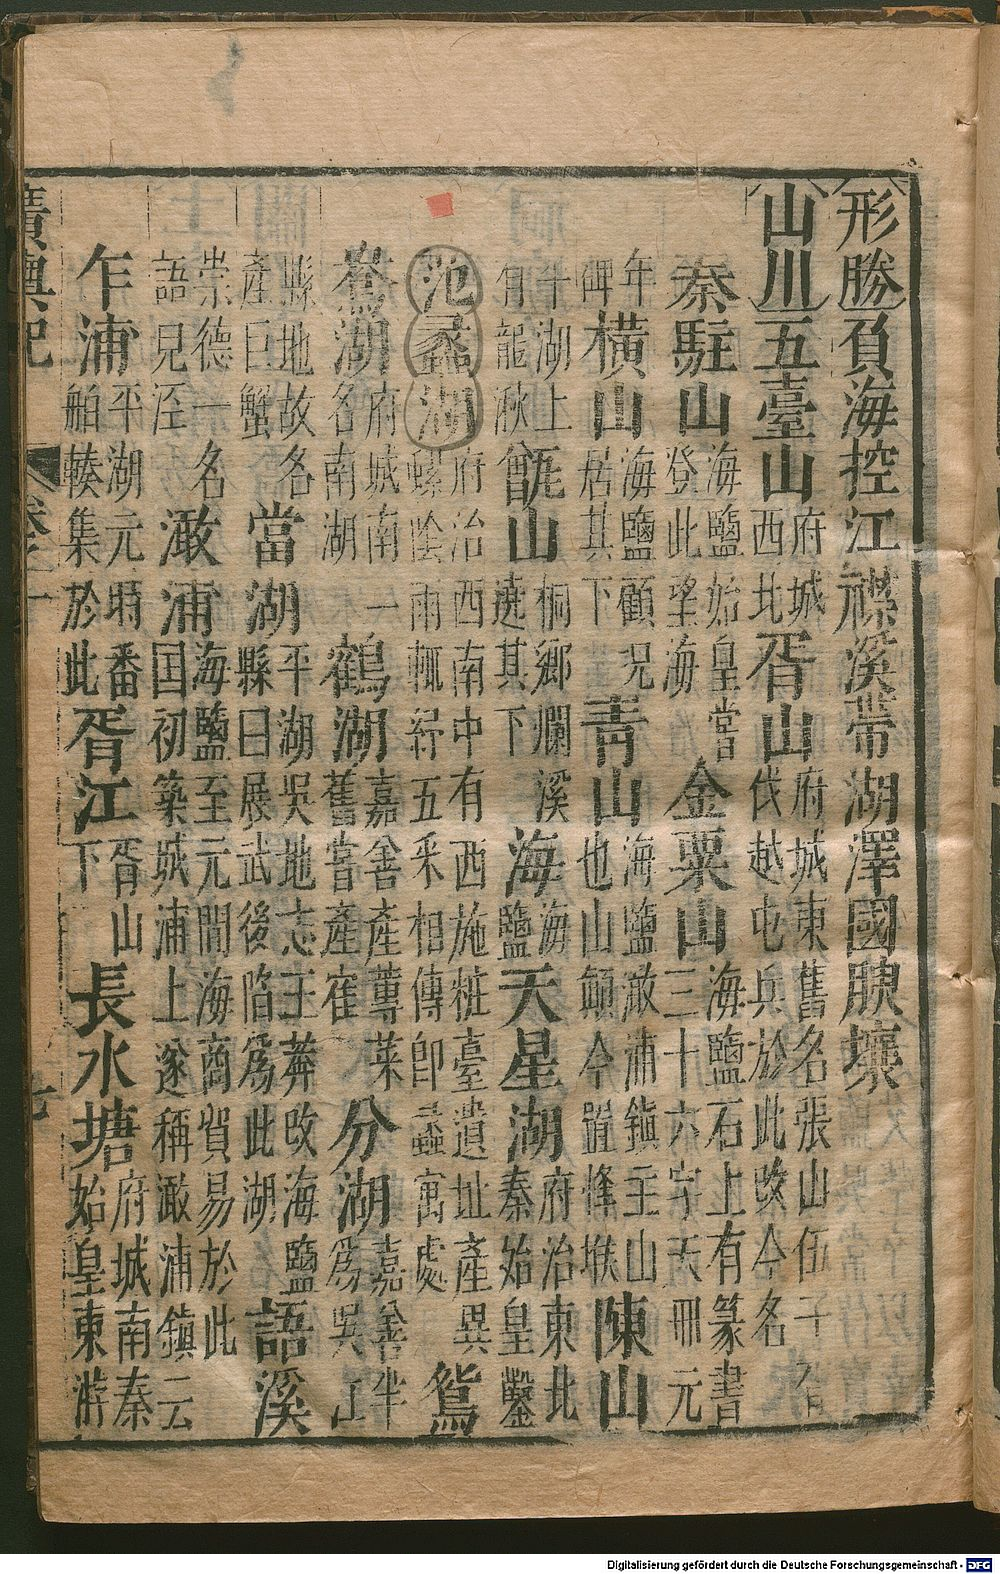 形勝負海控江襟溪帶湖澤國腴壤
山川五臺山府城西北胥山府城東舊名張山伍子胥伐越屯兵於此改今名
秦駐山海鹽始皇嘗登此望海金粟山海鹽石上有篆書三十六字天冊元
年碑橫山海鹽顧況居其下青山海鹽澉浦鎮主山也山顛今置烽堠陳山
平湖上有龍湫甑山桐鄉爛溪遶其下海海鹽天星湖府治東北秦始皇鑿
范蠡湖府治西南中有西施粧臺遺址產異螺陰雨輒紓五采相傳即蠡寓處鴛
鴦湖府城南一名南湖鶴湖嘉善產蓴菜舊嘗產寉分湖嘉善半為吳江
縣地故名產巨蟹當湖平湖吳地志王莽改海鹽縣曰展武後陷為此湖語溪
崇德一名語兒涇澉浦海鹽至元間海商貿易於此囯初築城浦上遂稱澉浦鎮云
乍浦平湖元時番舶輳集於此胥江胥山下長水塘府城南秦始皇東游
廣輿記 卷之十 七
Digitalisierung gefördert durch die Deutsche Forschungsgemeinschaft - DFG